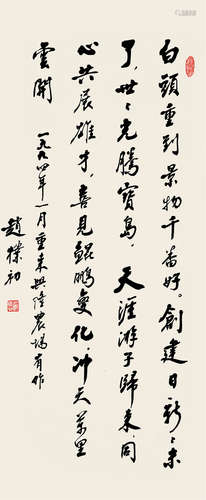 白頭重到景物千番好。創建日新〻未
了，世〻光騰寶島，天涯游子歸來，同
心共展雄才，喜見鯤鵬變化，冲天萬里
雲開 一九九四年一月重來興隆農場有作
趙樸初